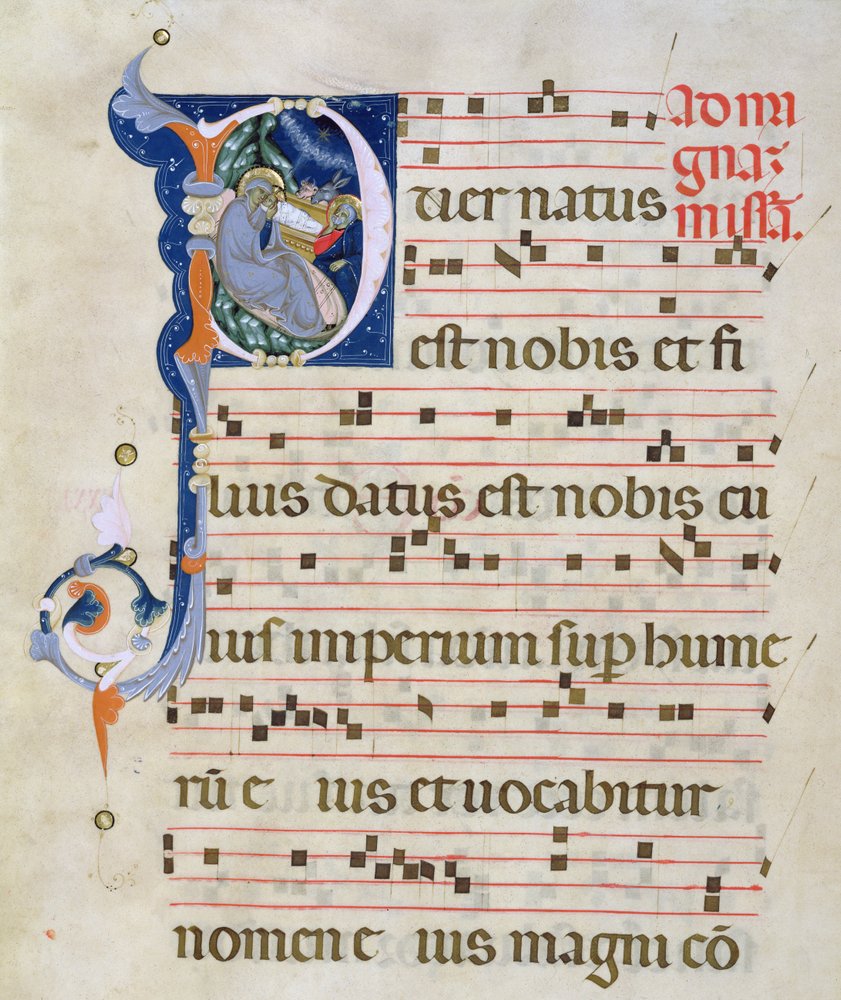 Ad ma
gnaz
missā.
Puer natus
est nobis et fi
lius datus est nobis cu
ius imperium sup hume
rū e ius et uocabitur
nomen e ius magni cō